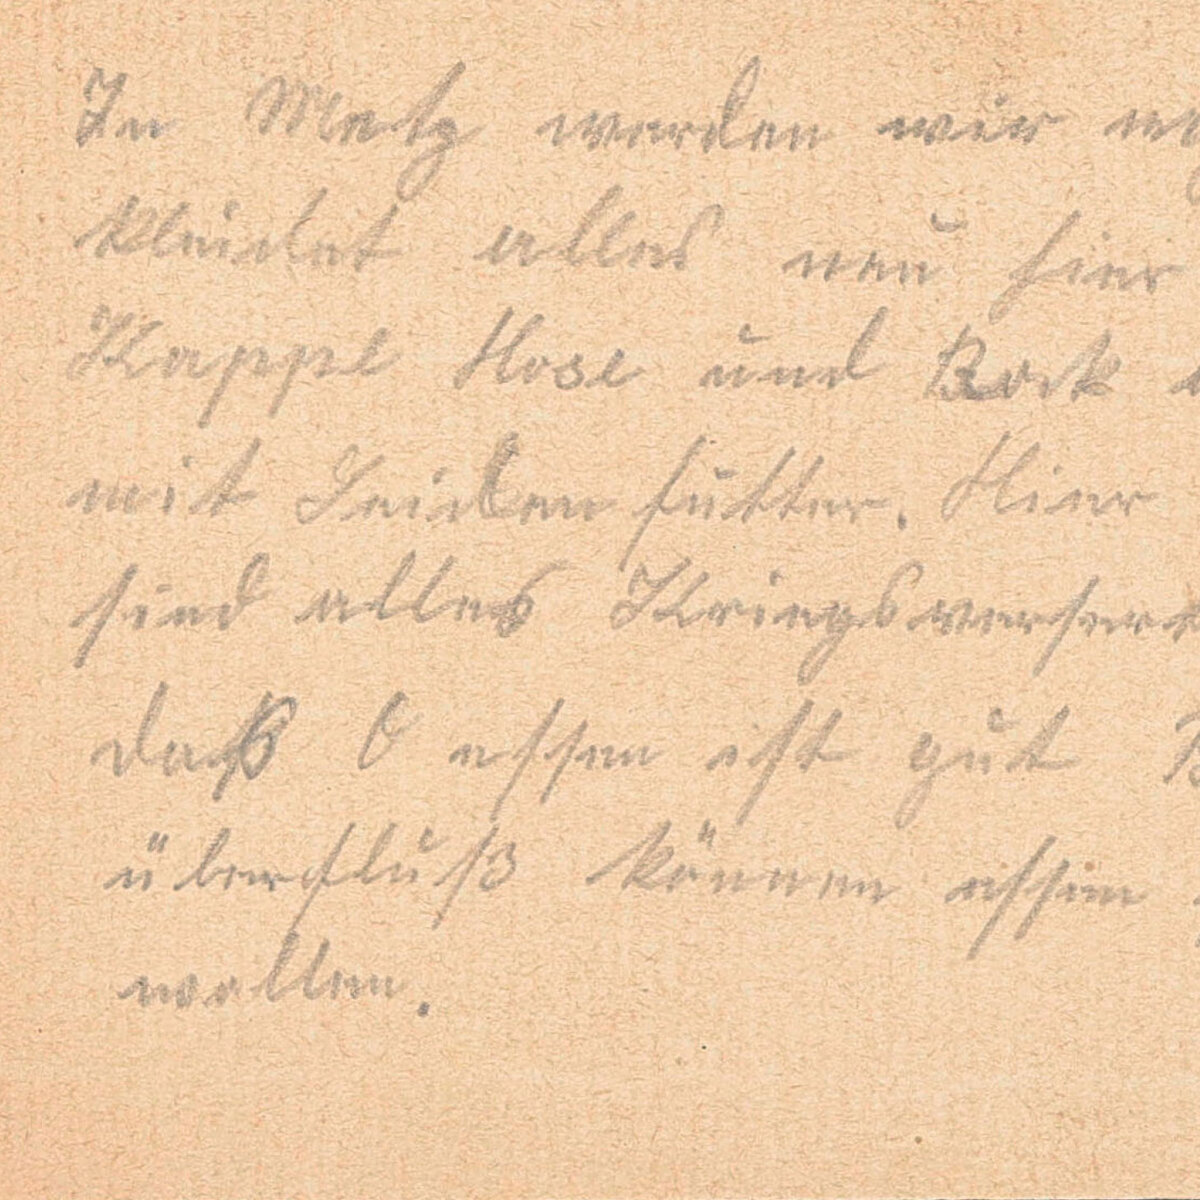 In Metz werden wir
kleidet alles neu hier
Kappe Hose und Rock
mit Seiden futter. Hier
sind alles
daß O essen ist gut
überfluß können essen
wollen.